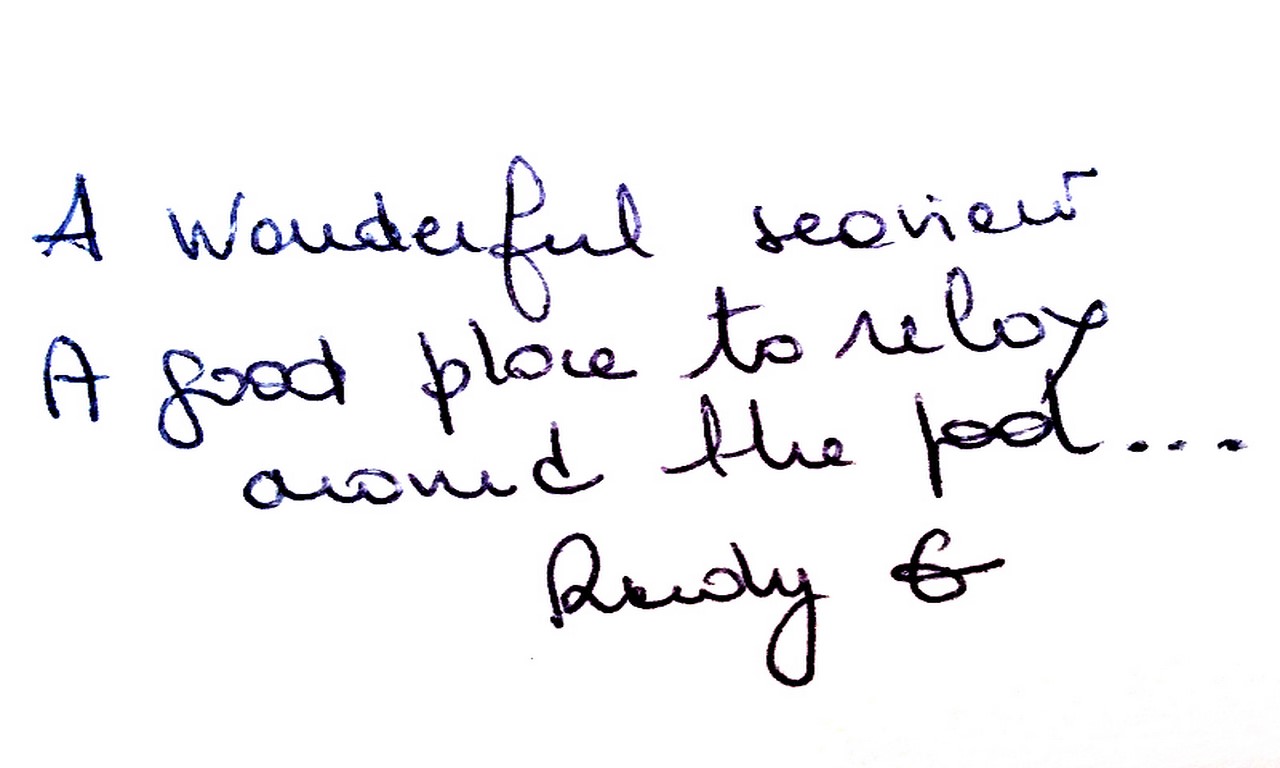 A wonderful seaview
A good place to relax
around the pool...
Rudy G